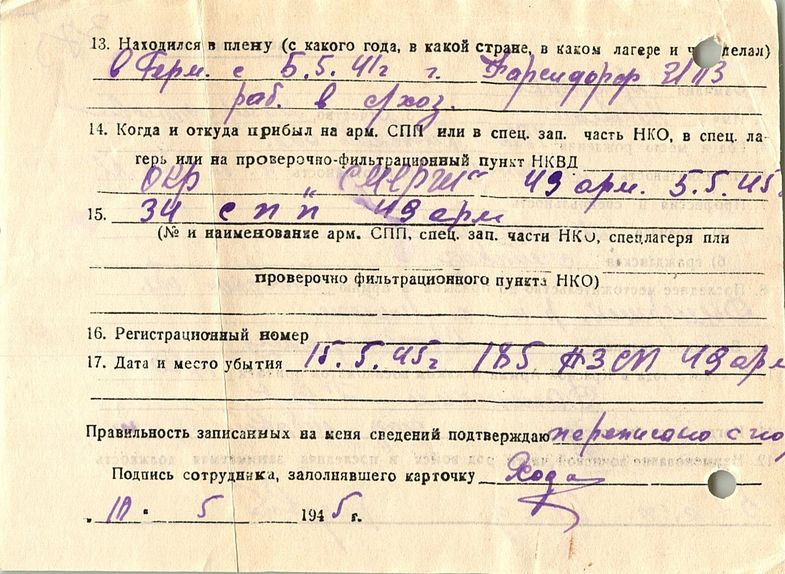 13. Находился в плену (с какого года, в какой стране, в каком лагере и ч делал)
в Герм. с 5.5.41г г.
раб. в с/хоз.
14. Когда и откуда прибыл на арм. СПП или в спец. зап. часть НКО, в спец. ла-
герь или на проверочно-фильтрационный пункт НКВД
ОКР "СМЕРШ" 49 арм. 5.5.45.
15. 34 СПП 49 арм
(№ и наименование арм. СПП, спец. зап. части НКО, спецлагеря или
проверочно фильтрационного пункта НКО)
16. Регистрационный номер
17. Дата и место убытия 15.5.45г 185 АЗСП 49 арм
Правильность записанных на меня сведений подтверждаю переписано с
Подпись сотрудника, заполнявшего карточку
5 1945 г.